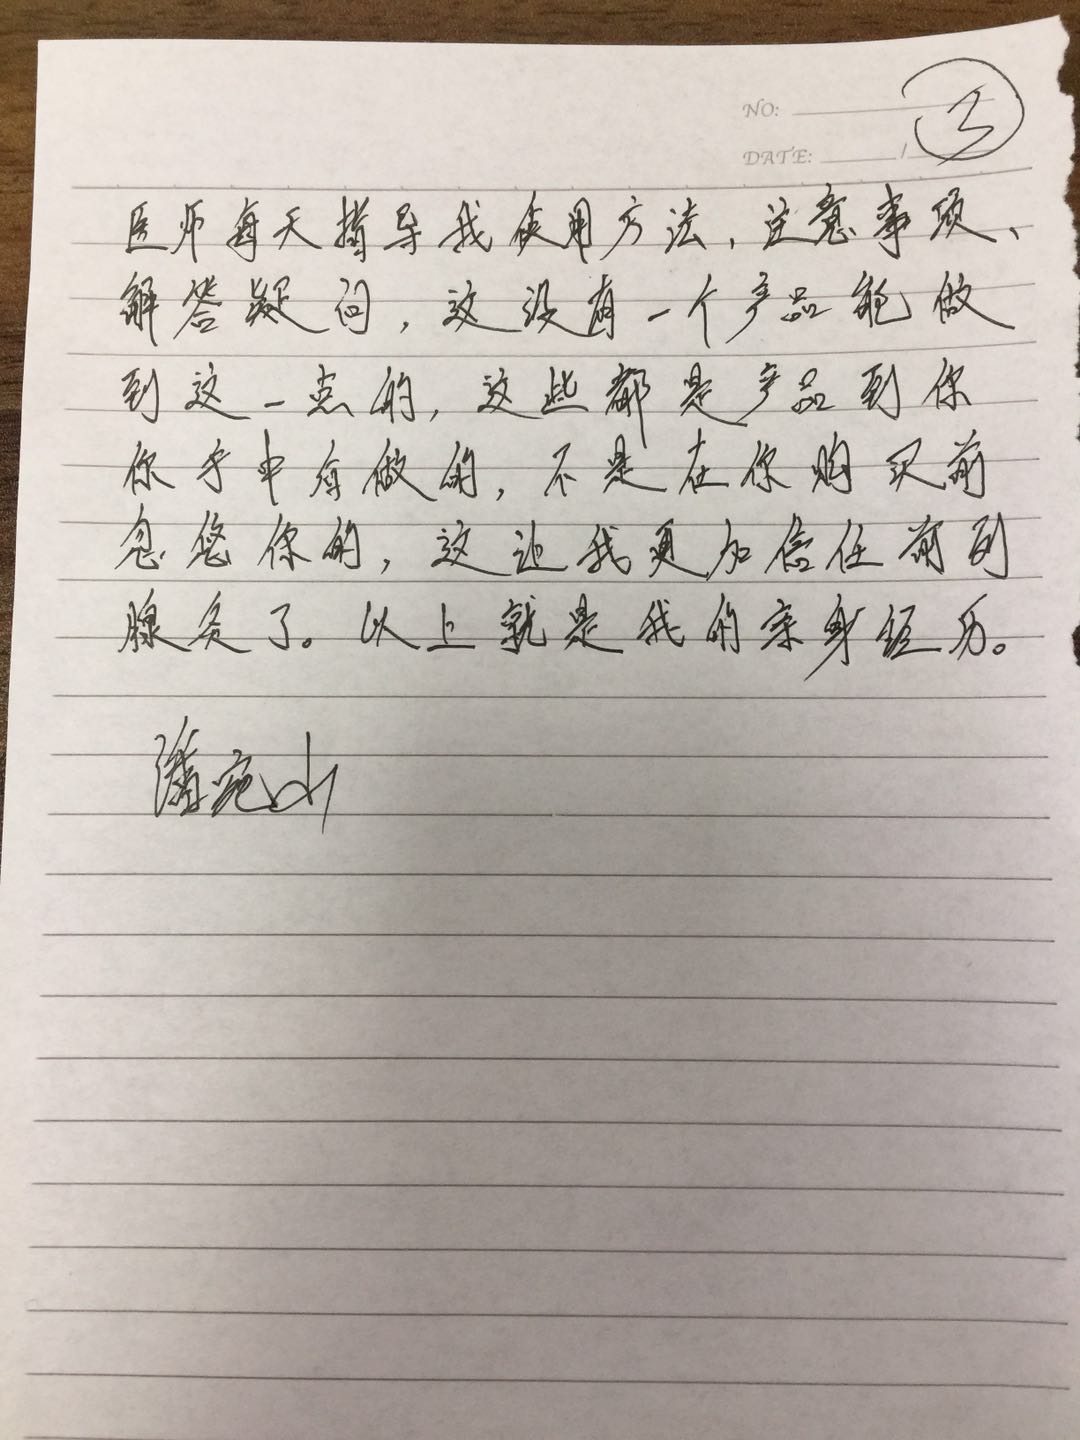 NO:
③
DATE: /
医师每天指导我使用方法、注意事项、
解答疑问，这没有一个产品能做
到这一点的，这些都是产品到你
你手中有做的，不是在你购买前
忽悠你的，这让我更加信任前列
腺灸了。以上就是我的亲身经历。
潘宛山